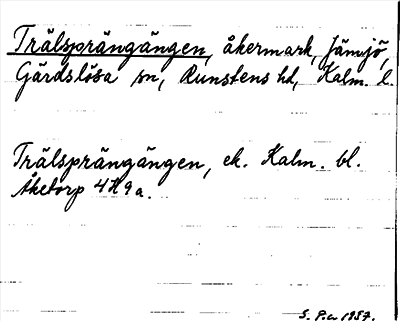 Trälsprängängen, åkermark, Jämjö,
Gärdslösa sn, Runstens hd, Kalm. l.
Trälsprängängen, ek. Kalm. bl.
Åketorp 4H9a.
S. P:n 1957.